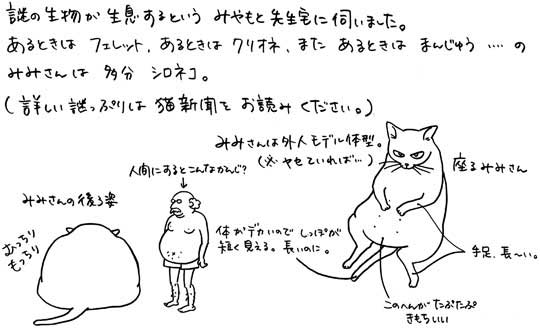 謎の生物が生息するという みやもと先生宅に伺いました。
あるときは フェレット、あるときは クリオネ、また あるときは まんじゅう ‥‥の
みみさんは 多分 シロネコ。
(詳しい謎っぷりは 猫新聞を お読みください。)
みみさんは外人モデル体型。
(※ やせていれば…)
座るみみさん
人間にするとこんなかんじ?
みみさんの後ろ姿
むっちり
もっちり
体がデカいので しっぽが
短く見える。長いのに。
手足、長〜い。
このへんが たぷたぷ
きもちいい